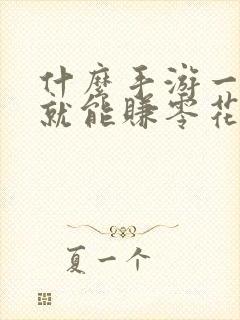 什麼手游一
就能賺零花
夏一个